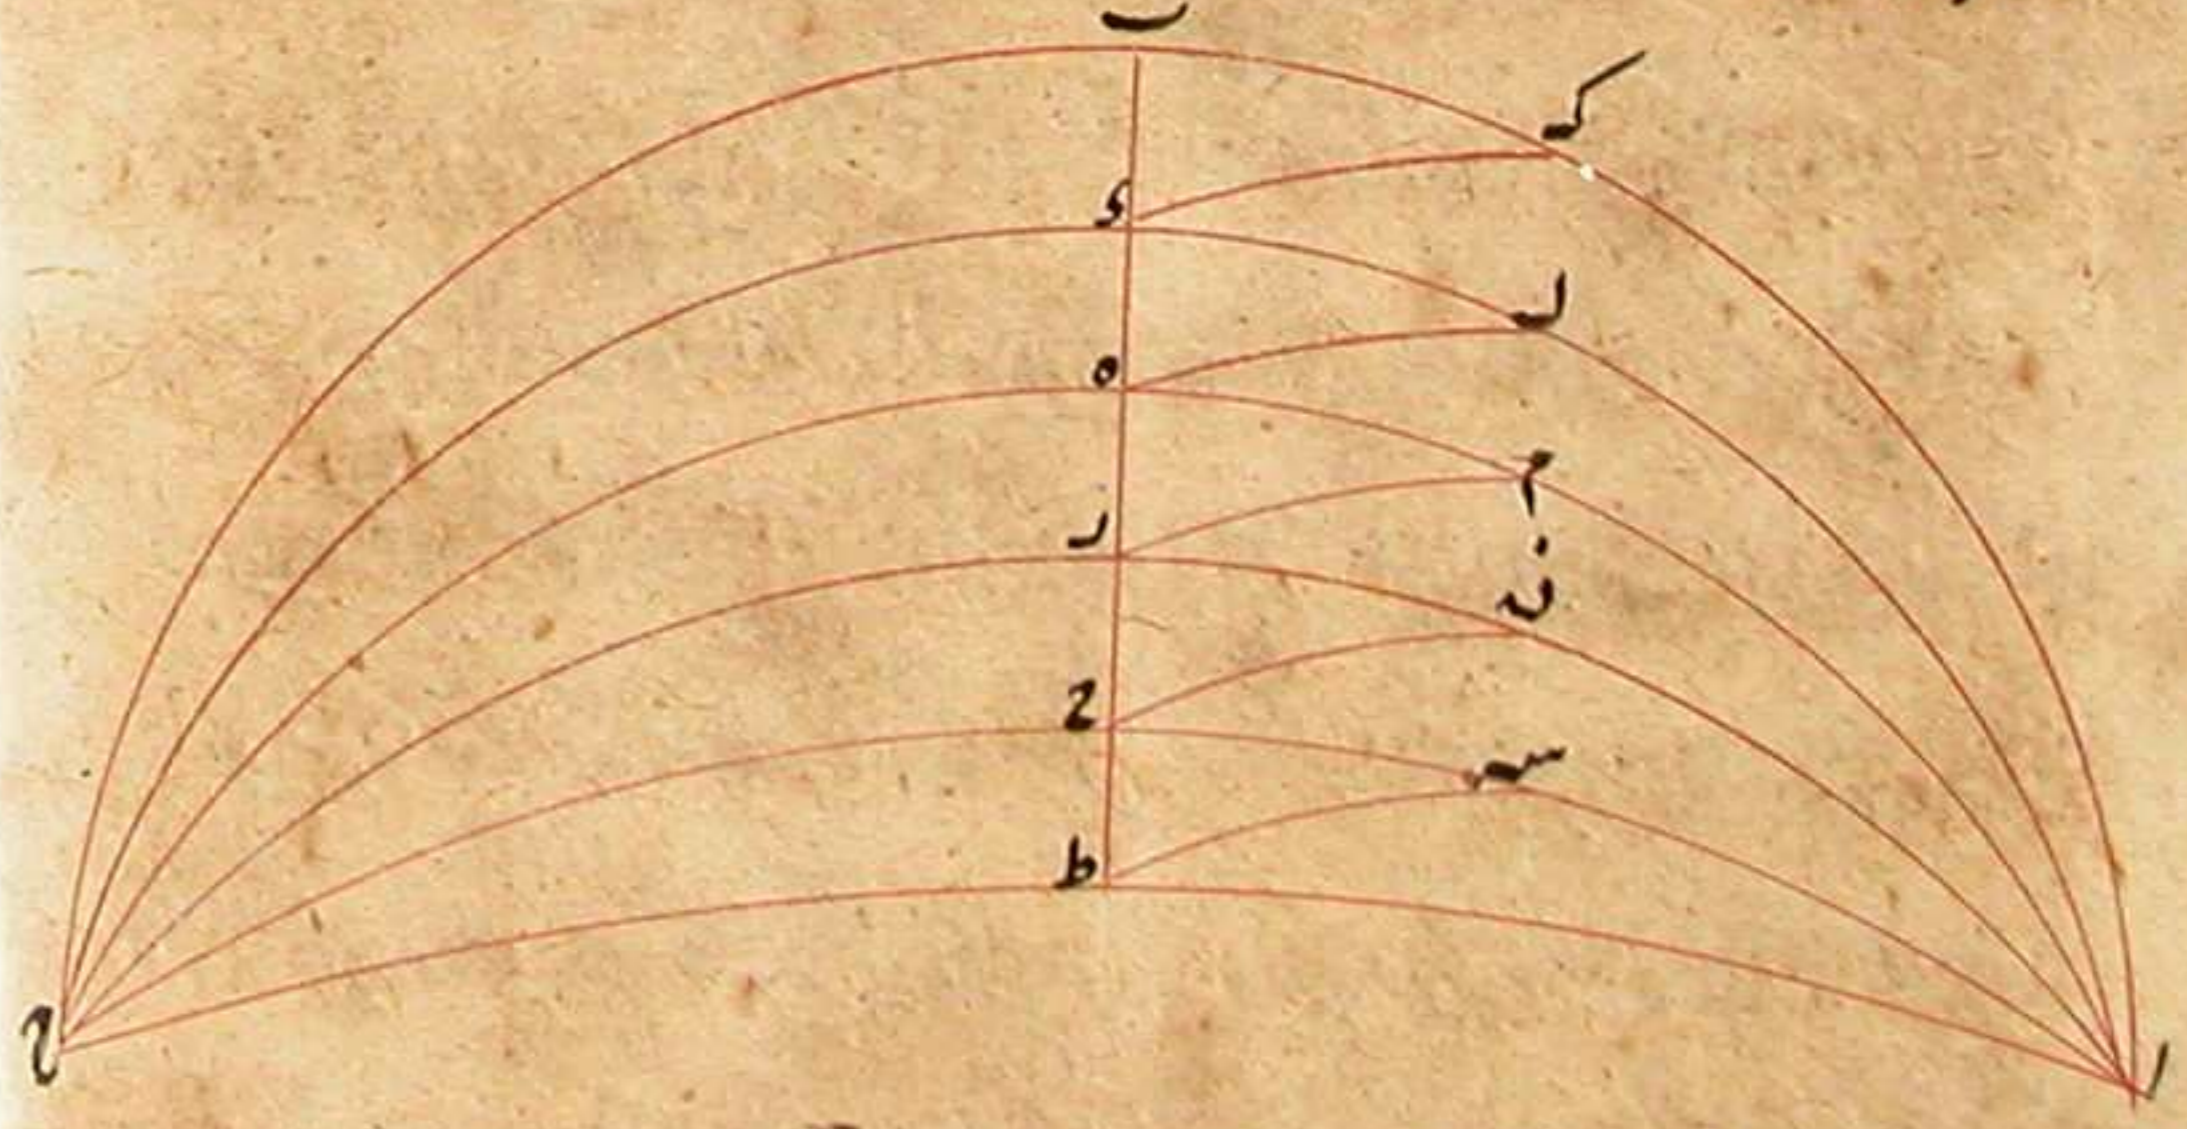 ب
ك
د
ل
ه
م
ز
ن
ح
س
ط
ج
ا